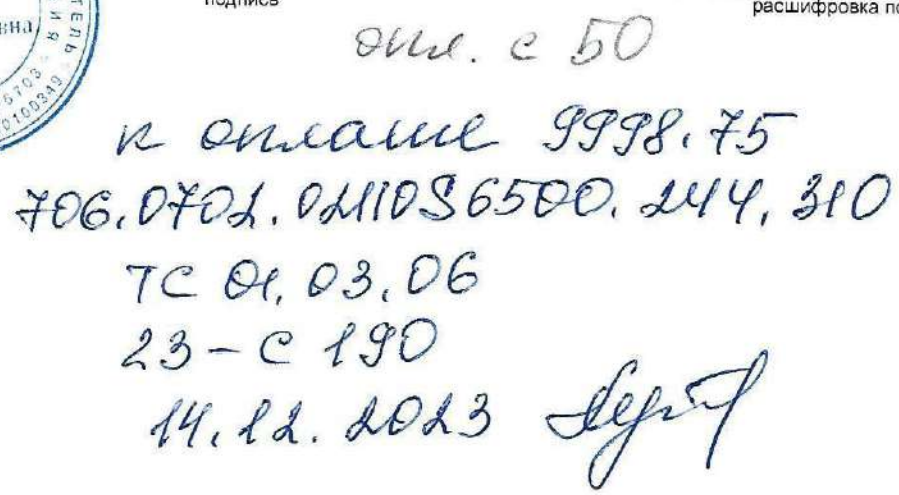 подпись
расшифровка по
вна
ТЕЛЬ
опл. с 50
к оплате 9998.75
706.0702.02110S6500.244.310
ТС 01.03.06
23-С 190
14.12.2023